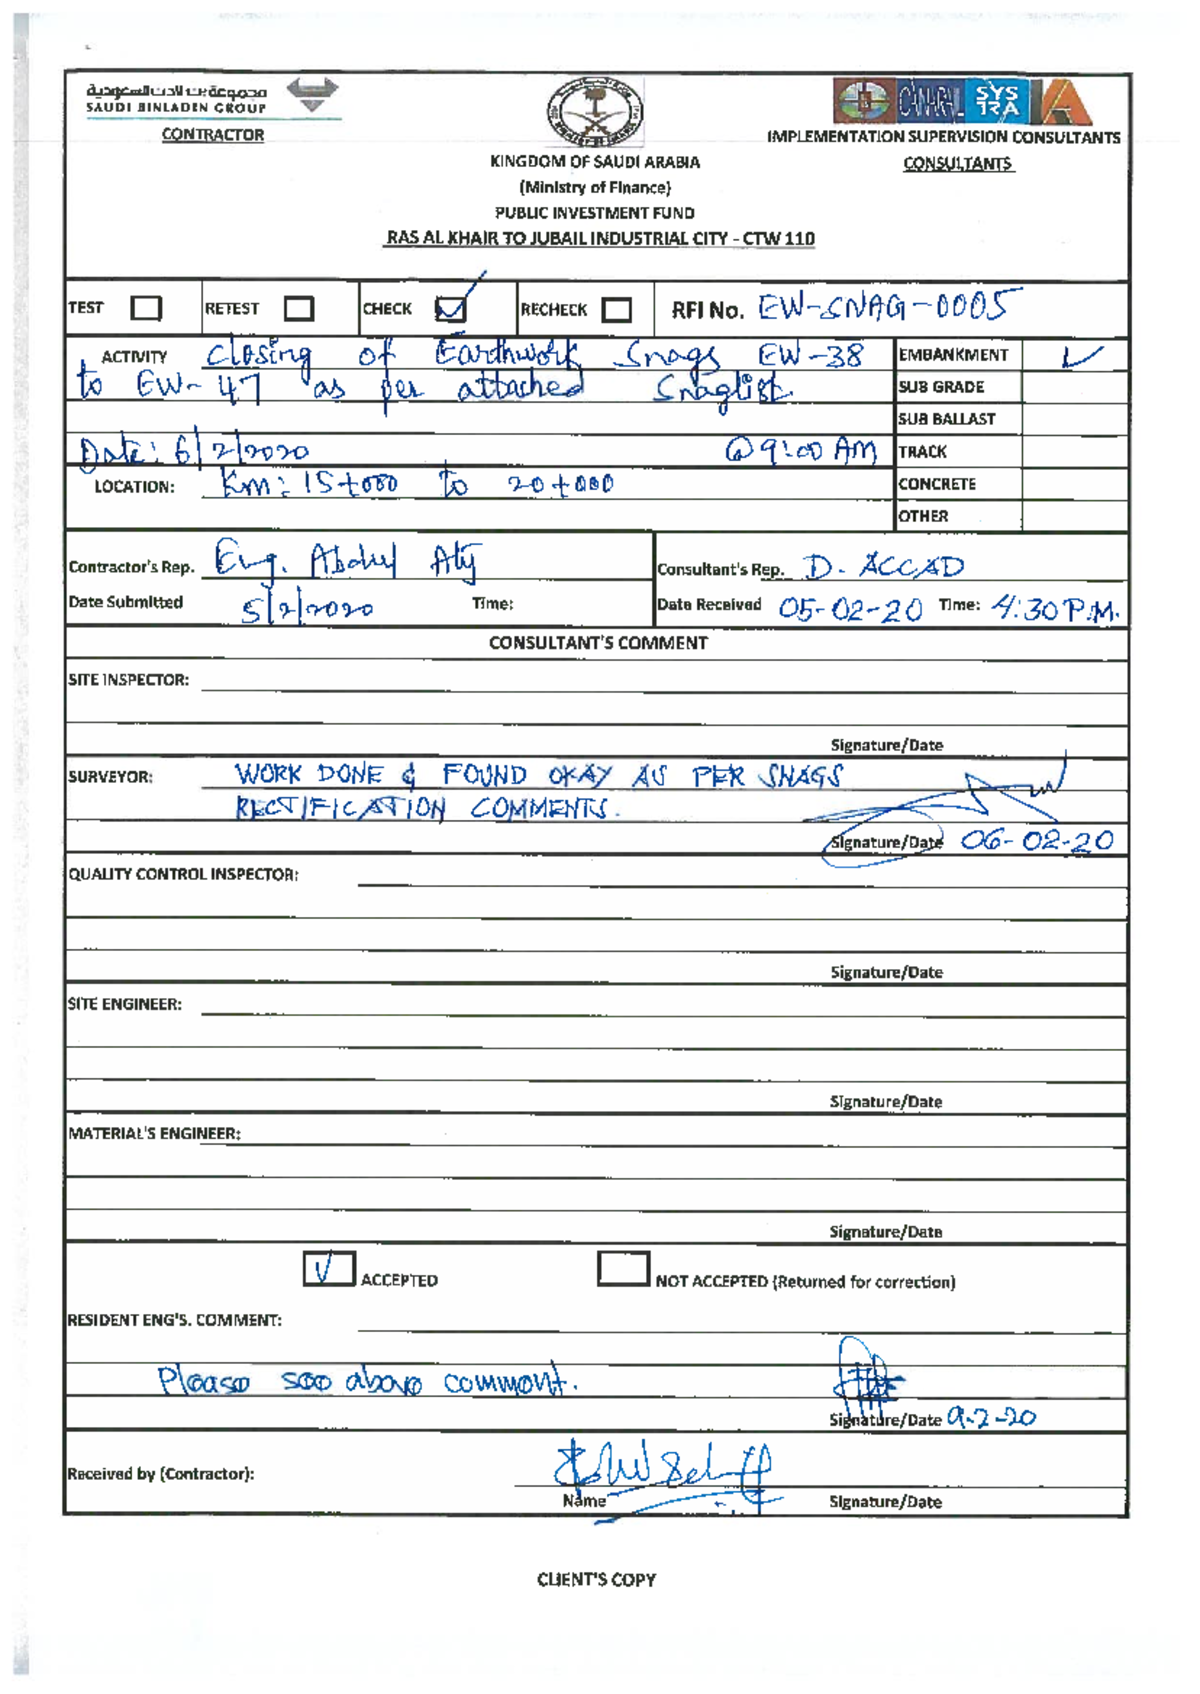 SAUDI BINLADEN GROUP
CONTRACTOR
SYSTRA
IMPLEMENTATION SUPERVISION CONSULTANTS
CONSULTANTS
KINGDOM OF SAUDI ARABIA
(Ministry of Finance)
PUBLIC INVESTMENT FUND
RAS AL KHAIR TO JUBAIL INDUSTRIAL CITY - CTW 110
TEST RETEST CHECK RECHECK RFI No. EW-SNAG-0005
ACTIVITY Closing of Earthwork Snags EW-38 EMBANKMENT
to EW-47 as per attached Snaglist. SUB GRADE
SUB BALLAST
Date: 6/2/2020 @9:00 AM TRACK
LOCATION: Km: 15+000 to 20+000 CONCRETE
OTHER
Contractor's Rep. Eng. Abdul Aty Consultant's Rep. D. ACCAD
Date Submitted 5/2/2020 Time: Date Received 05-02-20 Time: 4:30 P.M.
CONSULTANT'S COMMENT
SITE INSPECTOR:
Signature/Date
SURVEYOR: WORK DONE & FOUND OKAY AS PER SNAGS
RECTIFICATION COMMENTS.
Signature/Date 06-02-20
QUALITY CONTROL INSPECTOR:
Signature/Date
SITE ENGINEER:
Signature/Date
MATERIAL'S ENGINEER:
Signature/Date
ACCEPTED NOT ACCEPTED (Returned for correction)
RESIDENT ENG'S. COMMENT:
Please see above comment.
Signature/Date 9-2-20
Received by (Contractor):
Name Signature/Date
CLIENT'S COPY